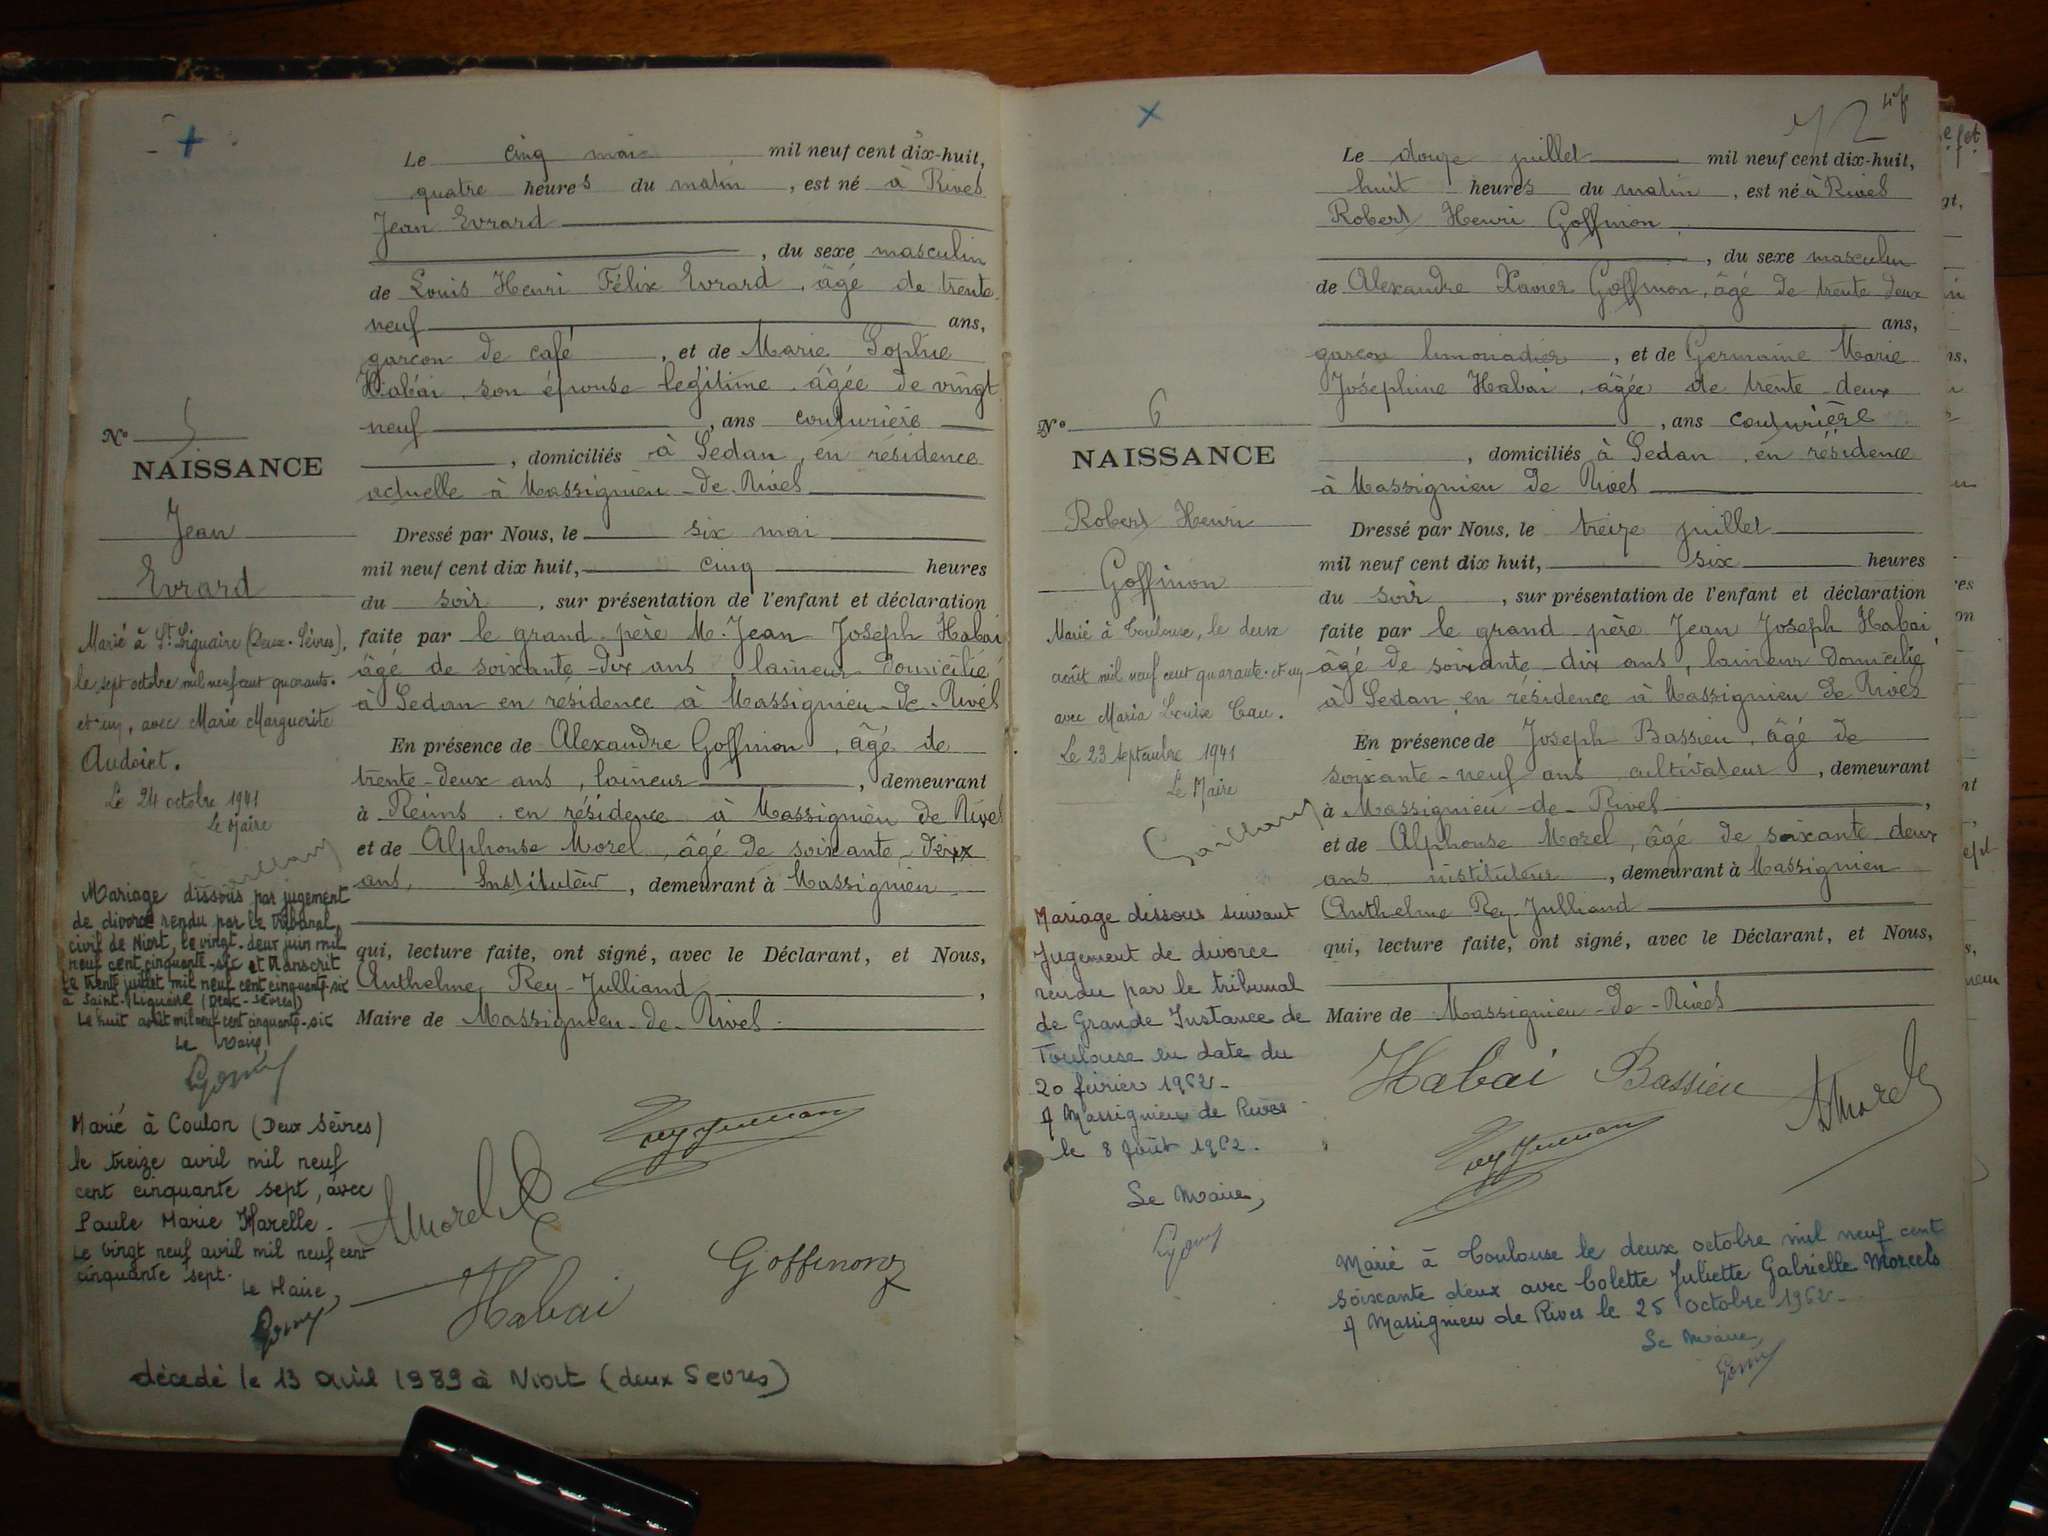 Le cinq mai mil neuf cent dix-huit,
quatre heures du matin, est né à Rives
Jean Evrard
, du sexe masculin
de Louis Henri Félix Evrard, âgé de trente
neuf ans,
garçon de café, et de Marie Sophie
Habai, son épouse légitime, âgée de vingt
neuf, ans couturière
, domiciliés à Sedan, en résidence
actuelle à Massignieu-de-Rives
Dressé par Nous, le six mai
mil neuf cent dix huit, cinq heures
du soir, sur présentation de l'enfant et déclaration
faite par le grand-père M. Jean Joseph Habai
âgé de soixante-dix ans, laineur domicilié
à Sedan en résidence à Massignieu-de-Rives
En présence de Alexandre Goffinon, âgé de
trente-deux ans, laineur, demeurant
à Reims, en résidence à Massignieu de Rives
et de Alphonse Morel, âgé de soixante-deux
ans, Instituteur, demeurant à Massignieu
qui, lecture faite, ont signé, avec le Déclarant, et Nous,
Anthelme Rey-Julliand,
Maire de Massignieu-de-Rives.
AMorel
Habai
Goffinon
N° 5
NAISSANCE
Jean
Evrard
Marié à St. Liguaire (Deux-Sèvres),
le sept octobre mil neuf cent quarante-
et-un, avec Marie Marguerite
Audoint.
Le 24 octobre 1941
Le Maire
Mariage dissous par jugement
de divorce rendu par le tribunal
civil de Niort, le vingt-deux juin mil
neuf cent cinquante-six et transcrit
le trente juillet mil neuf cent cinquante-six
à Saint-Liguaire (Deux-Sèvres)
Le huit août mil neuf cent cinquante-six
Le Maire
Marié à Coulon (Deux Sèvres)
le treize avril mil neuf
cent cinquante sept, avec
Paule Marie Marelle.
Le vingt neuf avril mil neuf cent
cinquante sept.
Le Maire,
décédé le 13 avril 1989 à Niort (deux Sevres)
72
Le douze juillet mil neuf cent dix-huit,
huit heures du matin, est né à Rives
Robert Henri Goffinon
, du sexe masculin
de Alexandre Xavier Goffinon, âgé de trente deux
ans,
garçon limonadier, et de Germaine Marie
Joséphine Habai, âgée de trente-deux
, ans couturière
, domiciliés à Sedan, en résidence
à Massignieu de Rives
Dressé par Nous, le treize juillet
mil neuf cent dix huit, six heures
du soir, sur présentation de l'enfant et déclaration
faite par le grand-père Jean Joseph Habai,
âgé de soixante-dix ans, laineur domicilié
à Sedan en résidence à Massignieu de Rives
En présence de Joseph Bassieu, âgé de
soixante-neuf ans cultivateur, demeurant
à Massignieu-de-Rives,
et de Alphonse Morel, âgé de soixante deux
ans instituteur, demeurant à Massignieu
Anthelme Rey-Julliand
qui, lecture faite, ont signé, avec le Déclarant, et Nous,
Maire de Massignieu-de-Rives
Habai Bassieu AMorel
N° 6
NAISSANCE
Robert Henri
Goffinon
Marié à Toulouse, le deux
août mil neuf cent quarante-et-un
avec Maria Louise Cau.
Le 23 septembre 1941
Le Maire
Mariage dissous suivant
Jugement de divorce
rendu par le tribunal
de Grande Instance de
Toulouse en date du
20 février 1962-
A Massignieu de Rives
le 8 Août 1962.
Le Maire,
Marié à Toulouse le deux octobre mil neuf cent
soixante deux avec Colette Juliette Gabrielle Morcels
A Massignieu de Rives le 25 octobre 1962-
Le Maire,